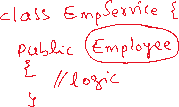 class EmpService {
Public Employee
{
//logic
}